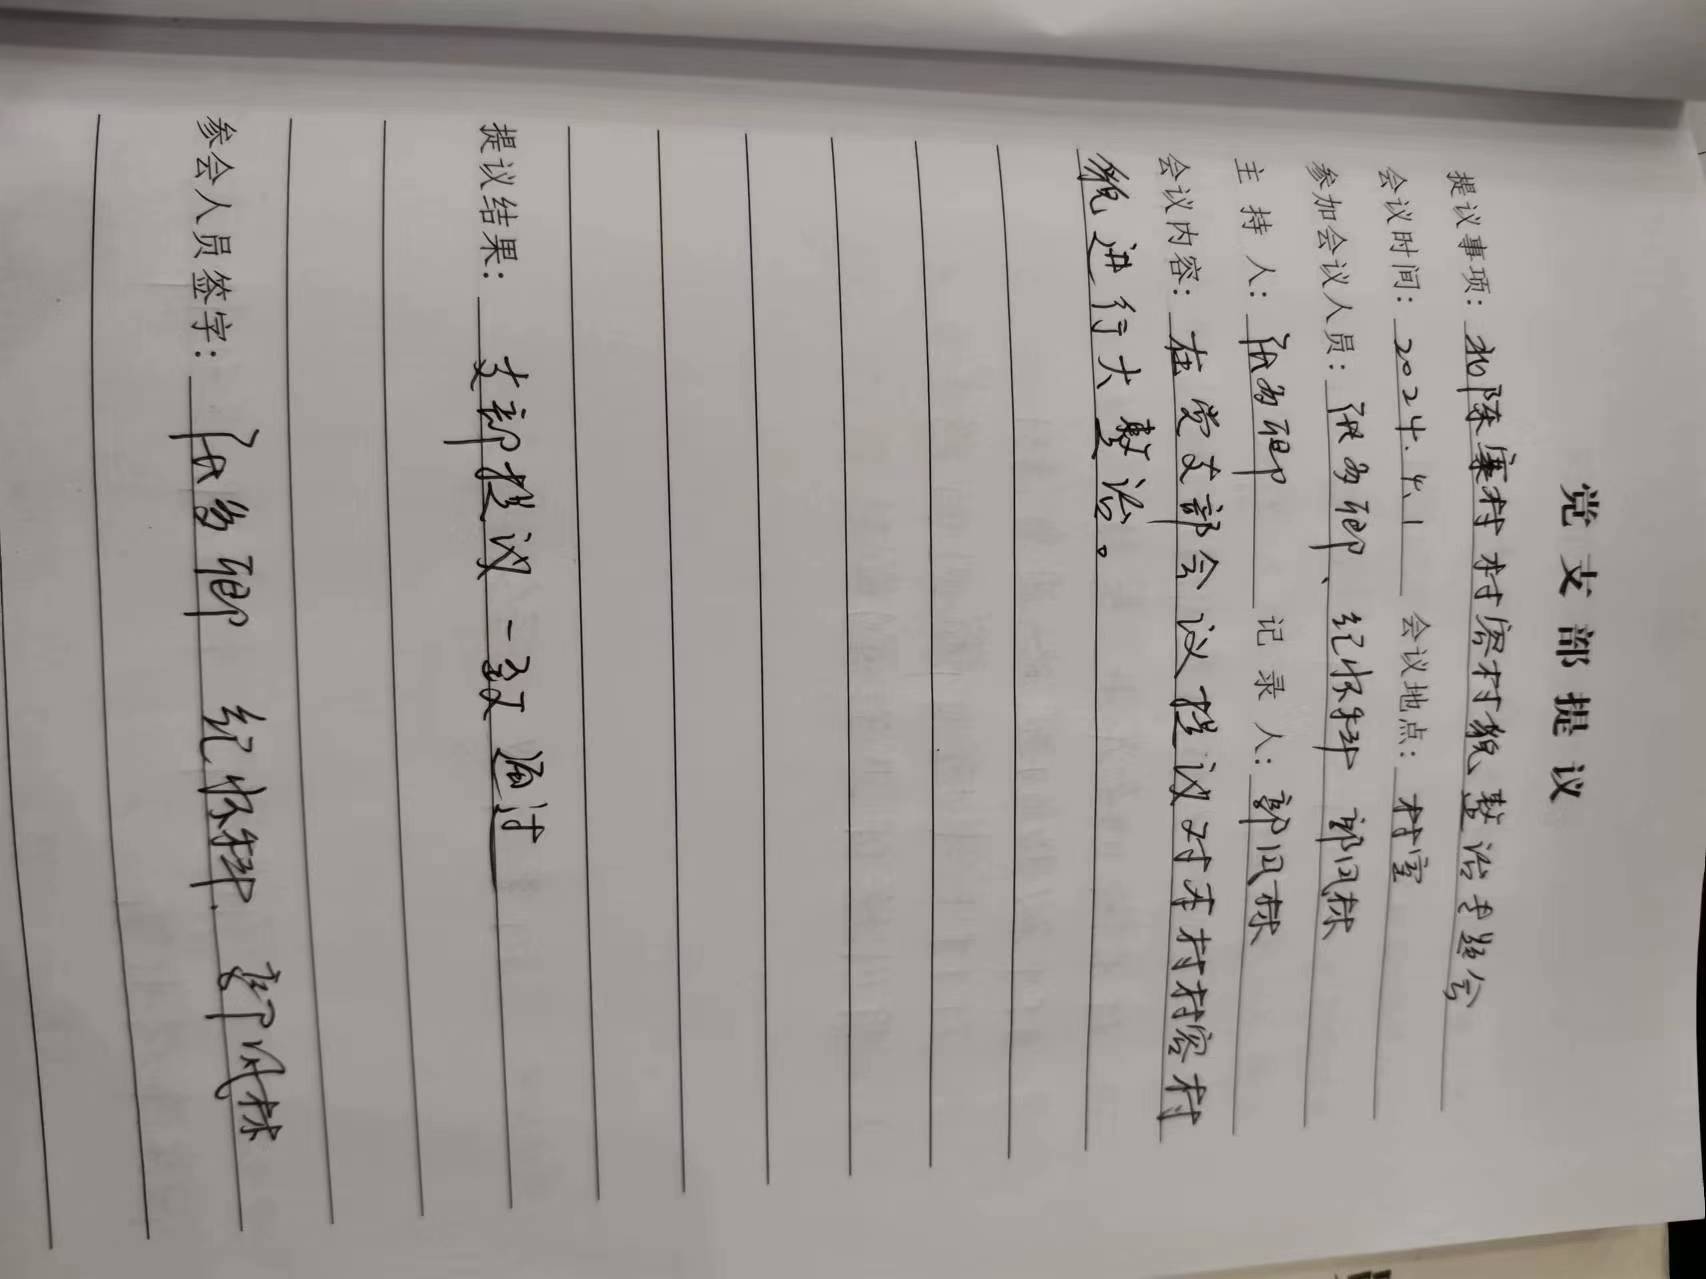 党支部提议
提议事项：北陈廉村村容村貌整治专题会
会议时间：2024.4.1 会议地点：村室
参加会议人员：张多卿、纪怀科 郭凤林
主持人：张多卿 记录人：郭凤林
会议内容：在党支部会议提议对本村村容村
貌进行大整治。
提议结果：支部提议一致通过
参会人员签字：张多卿 纪怀科、郭凤林